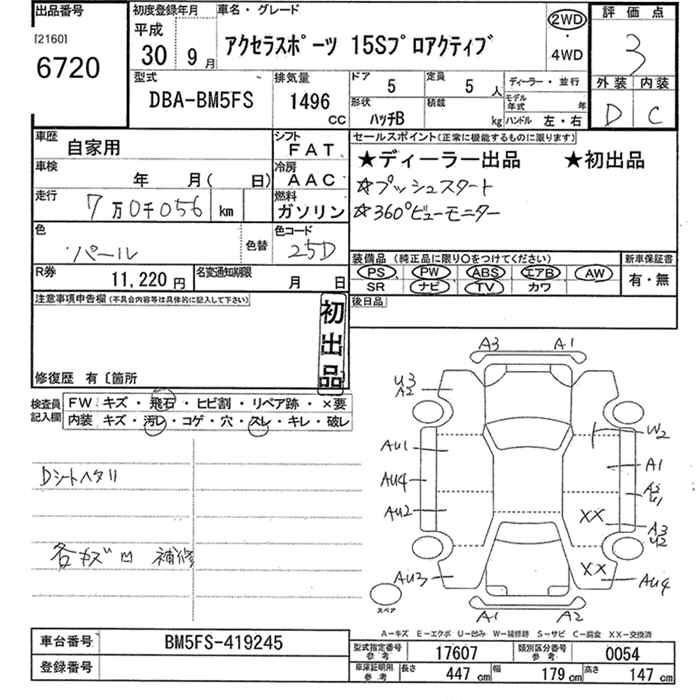 出品番号
[2160]
6720
初度登録年月
平成
30年 9月
車名・グレード
アクセラスポーツ 15Sプロアクティブ
2WD
・
4WD
評価点
3
外装 内装
D C
型式
DBA-BM5FS
排気量
1496
CC
ドア
5
定員
5人
形状
ハッチB
積載
kg
ディーラー・並行
モデル年式 年
ハンドル 左・右
車歴
自家用
シフト
FAT
車検
年 月( 日)
冷房
AAC
走行
7万0千056 km
燃料
ガソリン
色
パール
色替
色コード
25D
R券
11,220円
名変通知期限
月 日
セールスポイント(正常に機能するものに限ります)
★ディーラー出品 ★初出品
☆プッシュスタート
☆360°ビューモニター
装備品 (純正品に限り○をつけてください)
PS PW ABS エアB AW
SR ナビ TV カワ
新車保証書
有・無
後日品
注意事項申告欄(不具合内容等は具体的に記入して下さい)
初出品
修復歴 有〔箇所
検査員記入欄
FW キズ・飛石・ヒビ割・リペア跡・×要
内装 キズ・汚レ・コゲ・穴・スレ・キレ・破レ
Dシートヘタリ
各キズ凹 補修
A3 A1
U3
A2
W2
AU1
A1
AU4
A2
U1
AU2
XX
A3
U2
AU3
XX
AU4
スペア
A1 A2
A-キズ E-エクボ U-凹み W-補修跡 S-サビ C-腐食 XX-交換済
車台番号
BM5FS-419245
登録番号
型式指定番号
参考
17607
類別区分番号
参考
0054
車庫証明用
参考
長さ 447 cm 幅 179 cm 高さ 147 cm